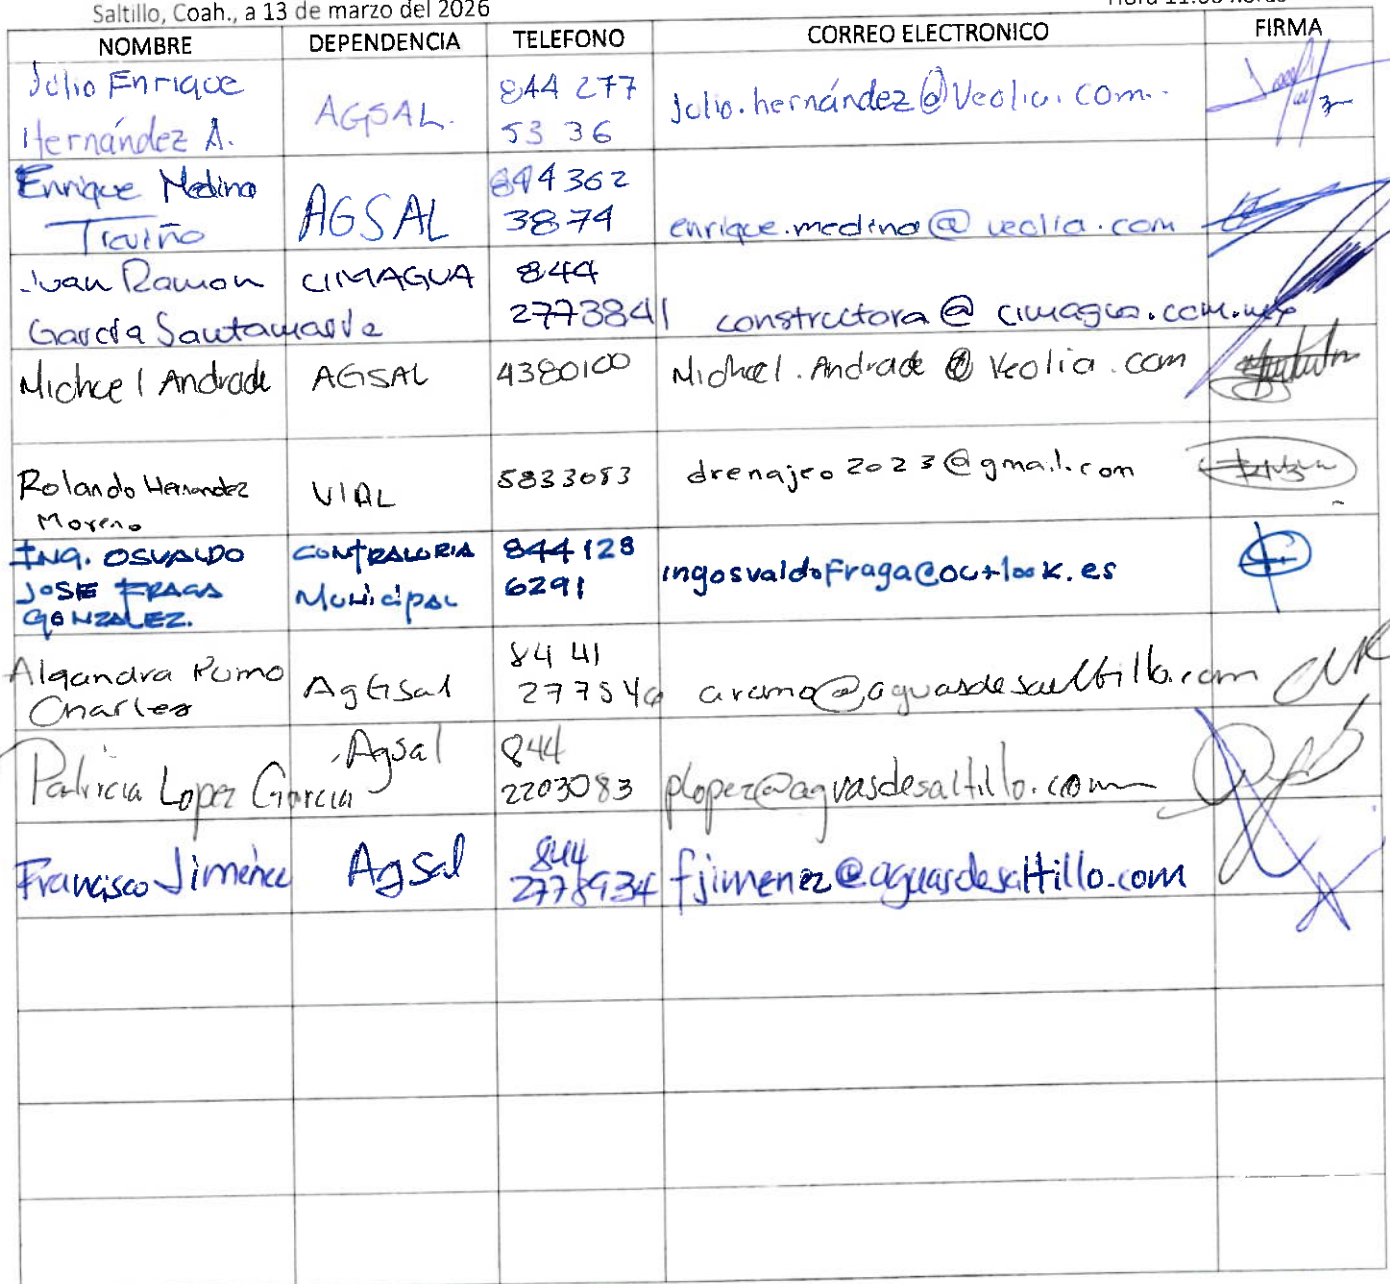 Saltillo, Coah., a 13 de marzo del 2026
NOMBRE DEPENDENCIA TELEFONO CORREO ELECTRONICO FIRMA
Julio Enrique
Hernández A. AGSAL. 844 277
53 36 Julio.hernández@Veolia.com.
Enrique Medina
Treviño AGSAL 844 362
3874 enrique.medina@veolia.com
Juan Ramon
García Santamaria CIMAGUA 844
2773841 constructora@cimagua.com.mx
Michael Andrade AGSAL 4380100 Michael.Andrade@Veolia.com
Rolando Hernandez
Moreno VIAL 5833083 drenajeo2023@gmail.com
ING. OSVALDO
JOSE FRAGA
GONZALEZ. CONTRALORIA
Municipal 844128
6291 ingosvaldoFraga@outlook.es
Charles AgGSal 84 41
aramo@aguasdesaltillo.com
Patricia Lopez Garcia Agsal 844
2203083 plopez@aguasdesaltillo.com
Francisco Jiménez AgSal 844
2778934 fjimenez@aguasdesaltillo.com